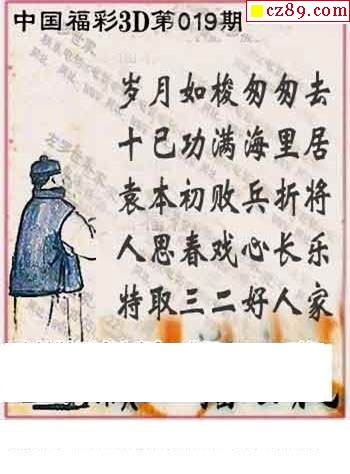 cz89.com
中国福彩3D第019期
岁月如梭匆匆去
十已功满海里居
袁本初败兵折将
人思春戏心长乐
特取三二好人家